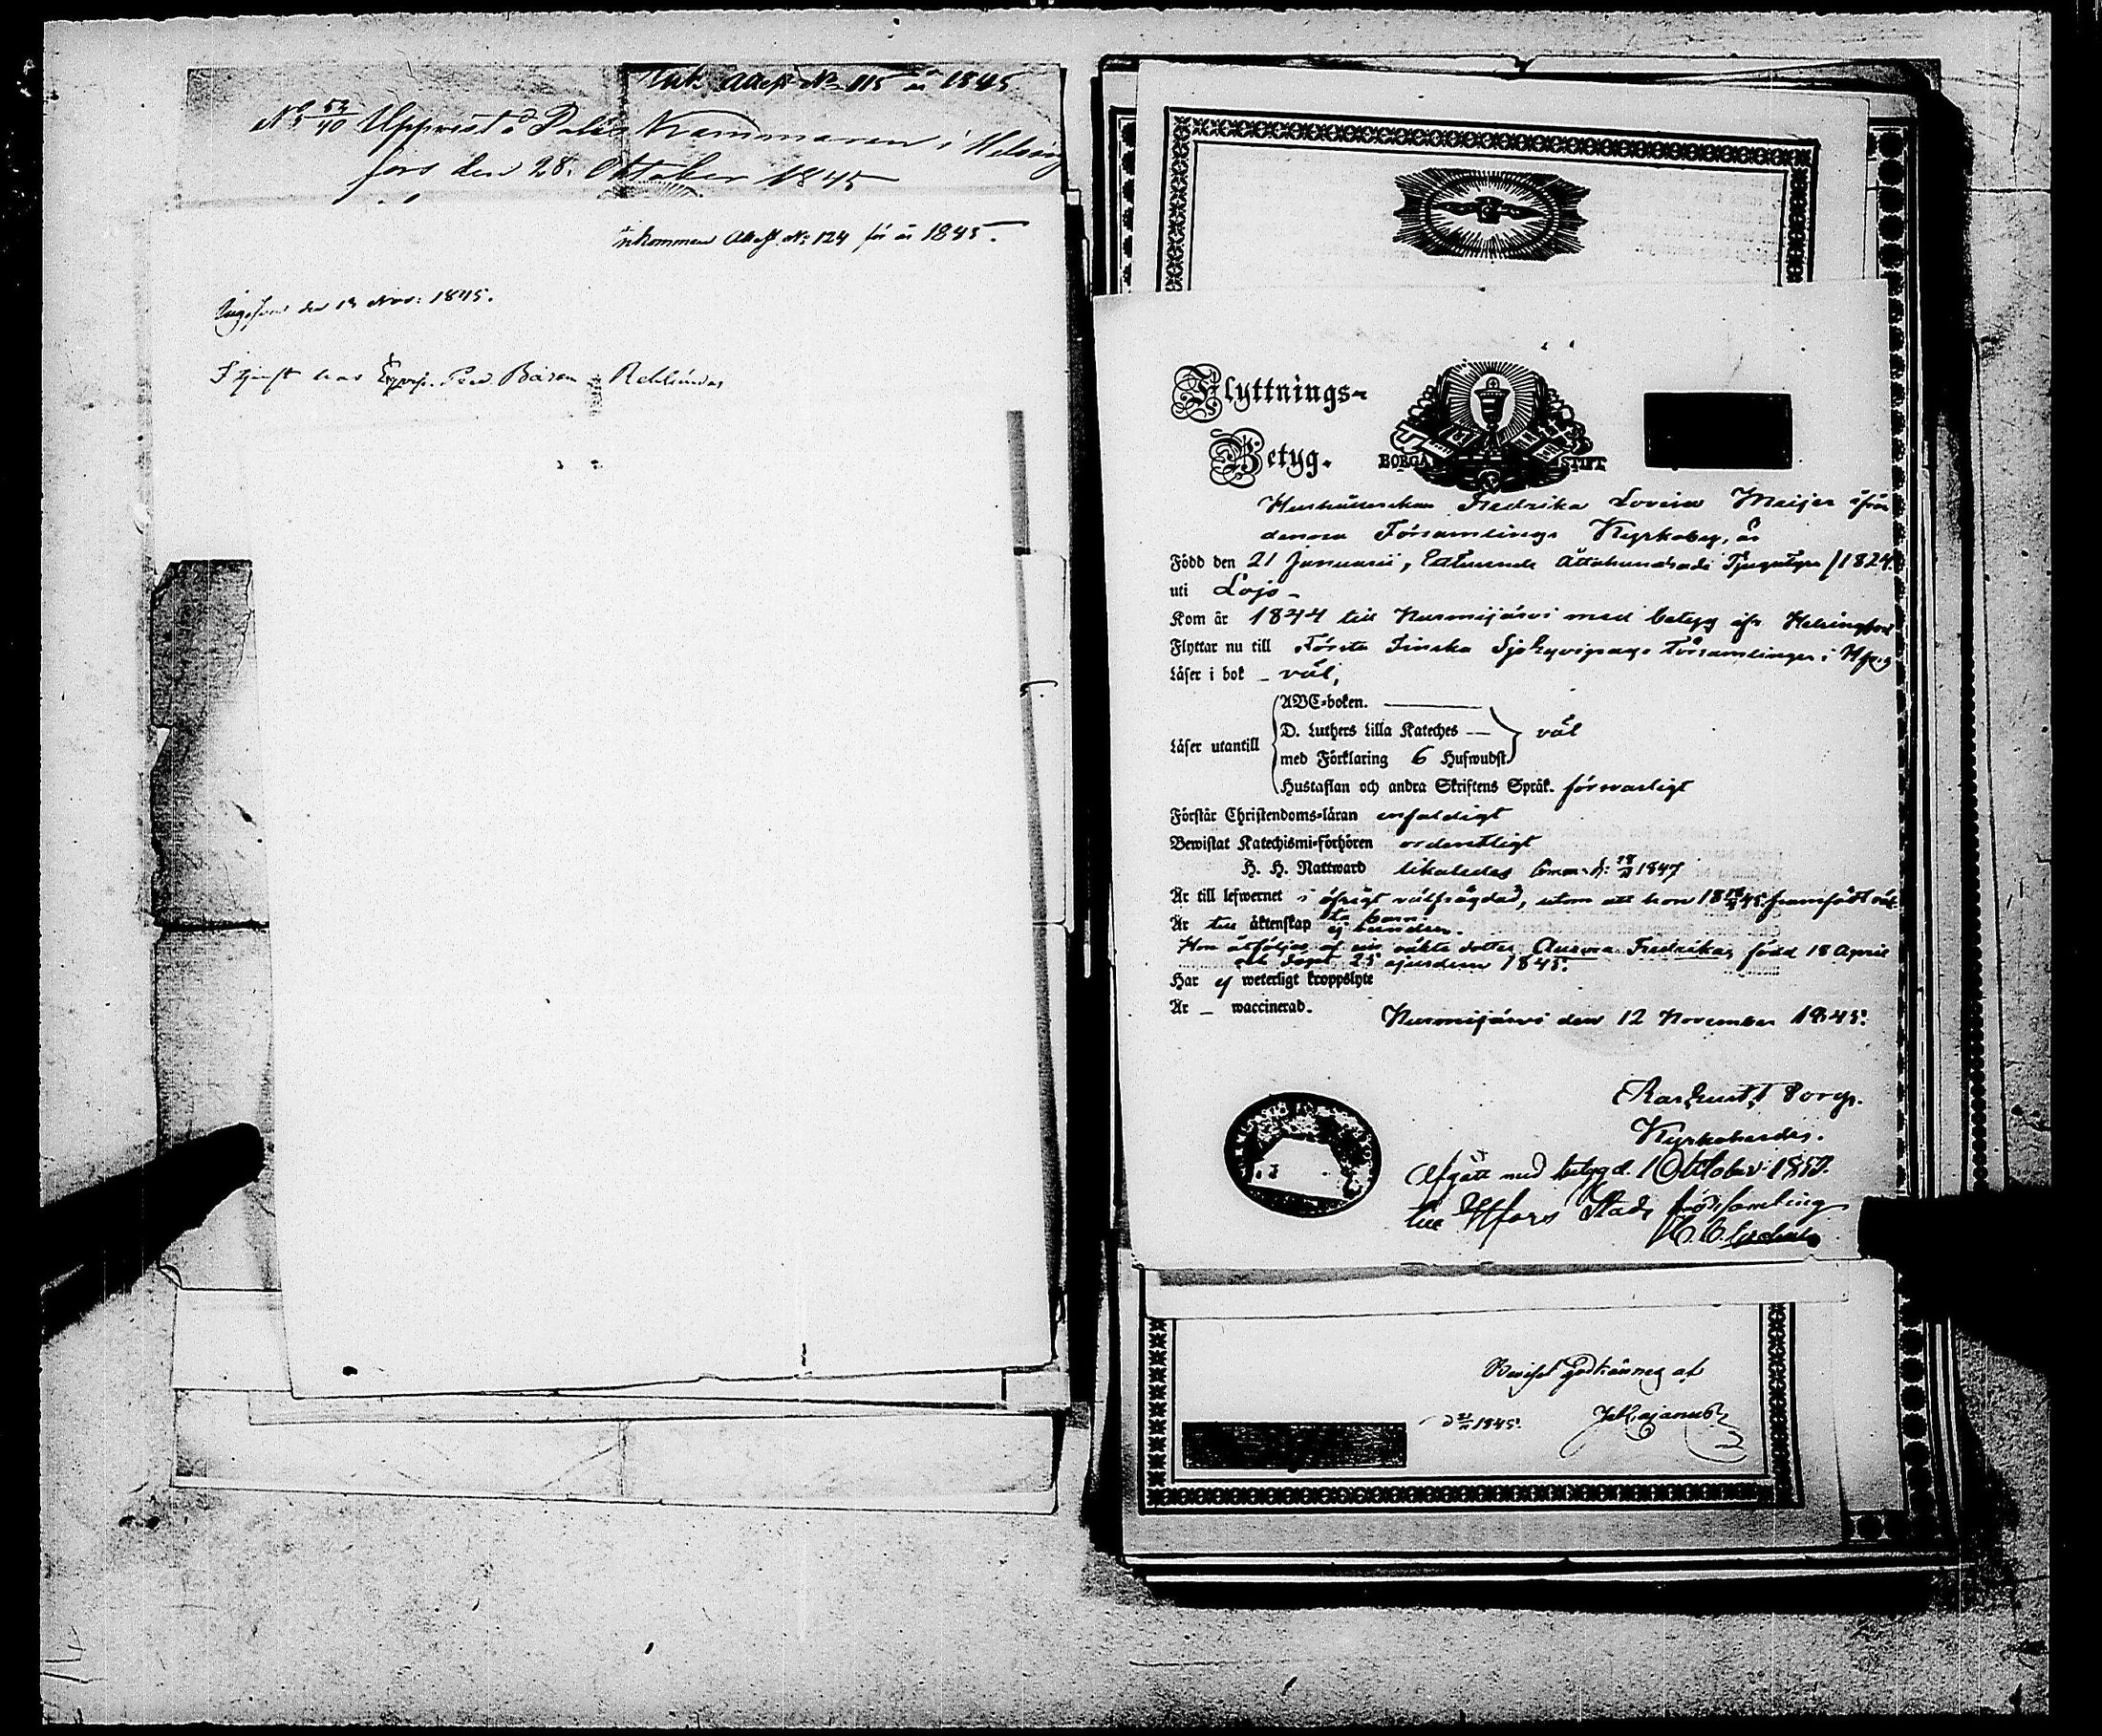 Ink. Attest No 115 år 1845
No 53/40 Uppvist å Polis Kammaren i Helsing
fors den 28. Oktober 1845
Inkommen Attest. No 124 för år 1845.
den 13 Nov: 1845.
I tjenst hos
Flyttnings-
Betyg.
BORGÅ STIFT
Hushållerskan Fredrika Lovisa Meijer ifrån
denna Församlings Kyrkoby, är
Född den 21 Januarii, Ettusende Åttahundrade Tjugufyra /1824
uti Lojo -
Kom år 1844 till Nurmijärvi med betyg ifr. Helsingfors
Flyttar nu till Första Finska Sjöequipage Församlingen i Hfors
Läser i bok - väl,
Läser utantill
ABC-boken.
D. Luthers Lilla Kateches - väl
med Förklaring 6 Hufwudst.
Hustaflan och andra Skriftens Språk. försvarligt
Förstår Christendoms-läran enfaldigt
Bewistat Katechismi-förhören ordentligt
H. H. Nattward likaledes
Är till lefwernet i öfrigt välfrägdad, utom att hon framfödt oäk-
ta barn.
Är till äktenskap ej bunden.
Hon åtföljes af sin oäkta dotter Aurora Fredrika, född 18 April
och döpt 25 ejusdem 1845.
Har ej weterligt kroppslyte
Är _ waccinerad.
Nurmijärvi den 12 November 1845.
Kyrkoherde.
Afgått med betyg d. 1 Oktober 1850.
till Hfors Stads församling
Beviset godkännes af
1845.